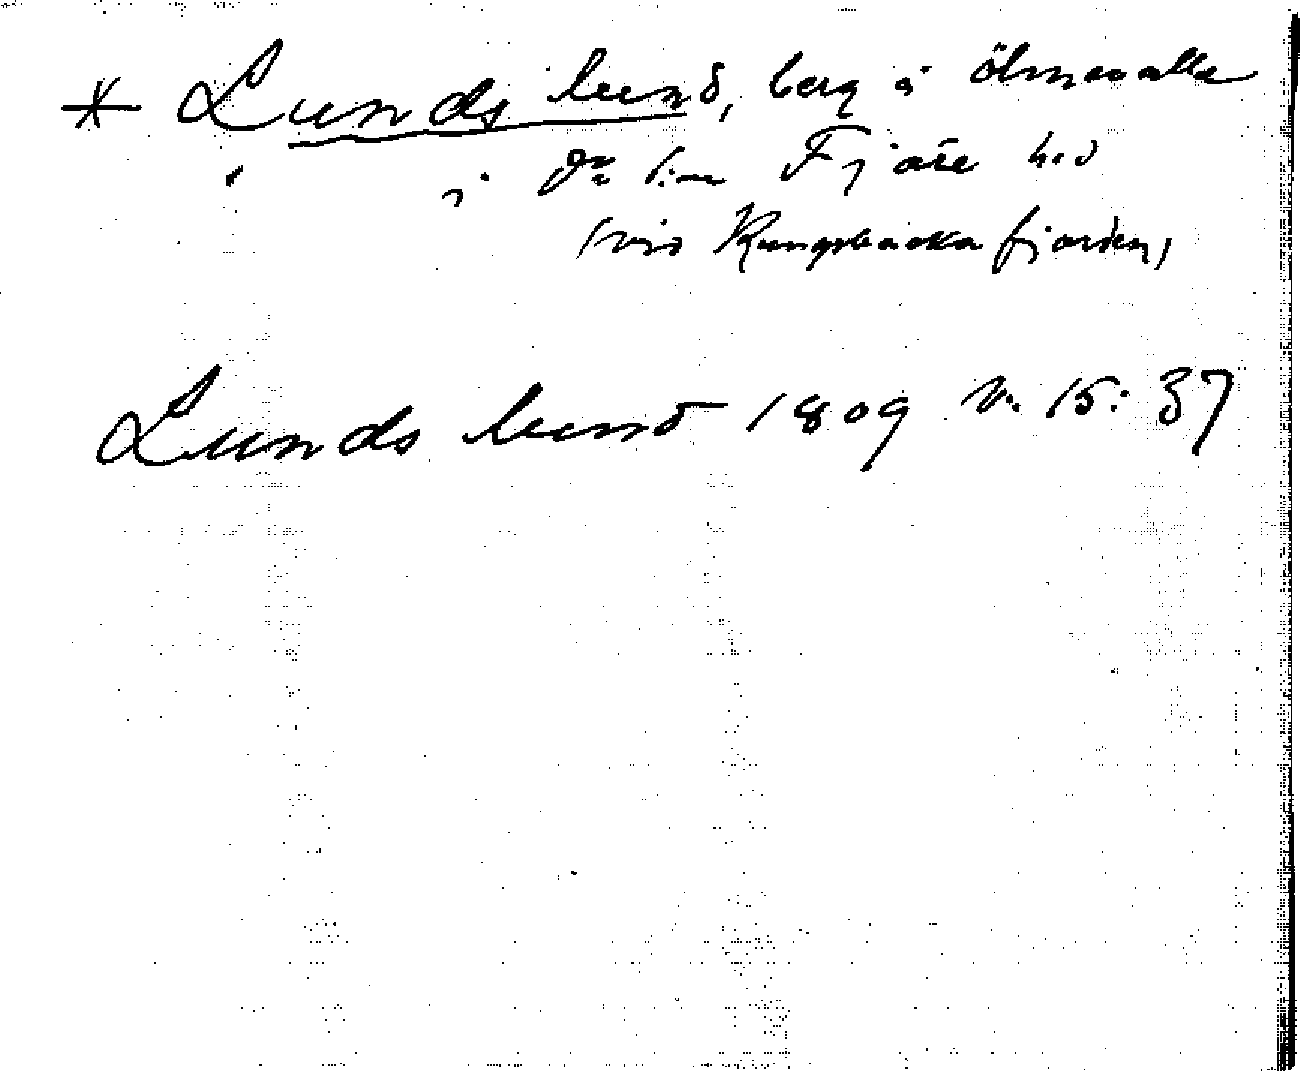 * Lunds lund, berg å Ölmevalla
i Dº s:n Fjäre hd
(vid Kungsbackafjorden)
Lunds lund 1809 v. 15: 37